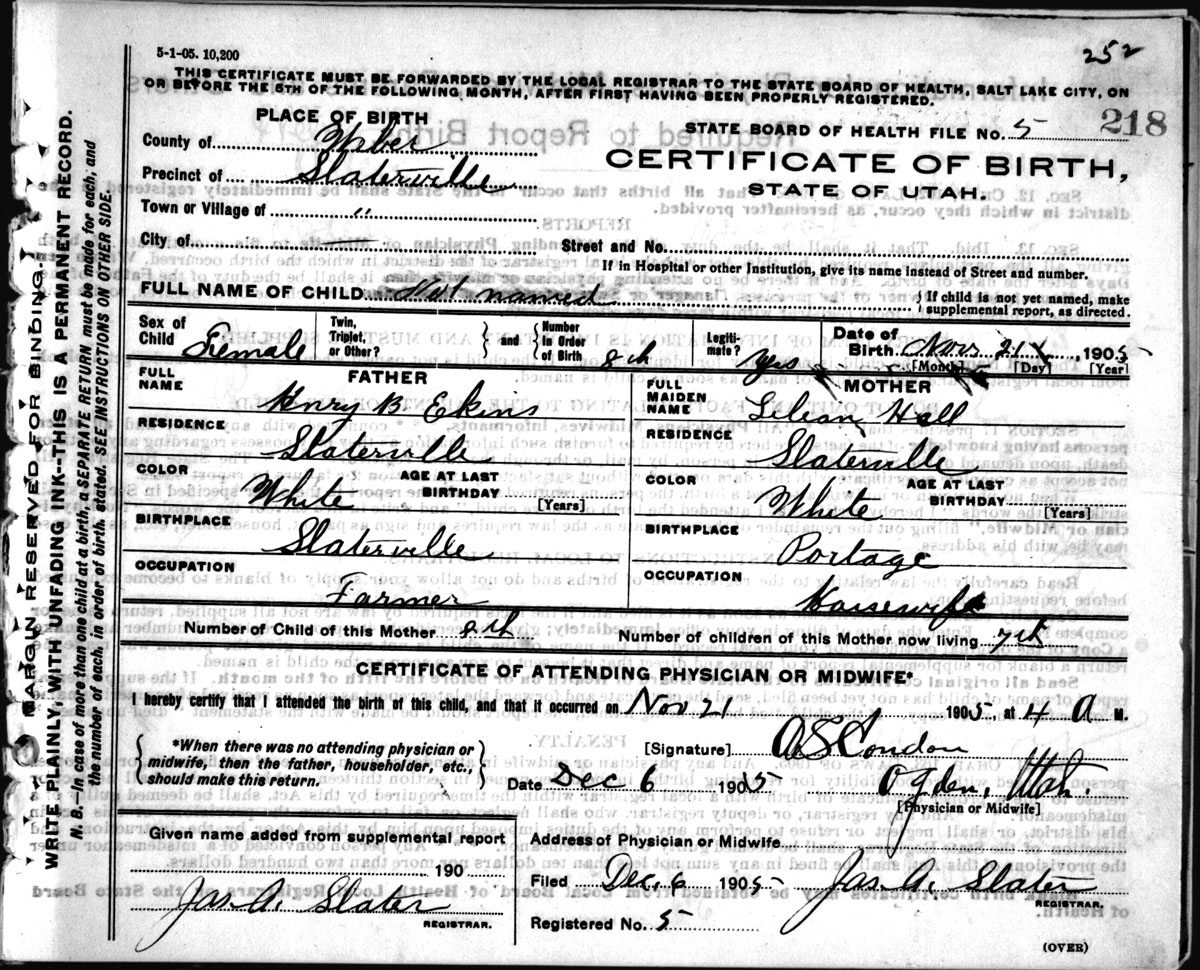 252
5-1-05. 10,200
THIS CERTIFICATE MUST BE FORWARDED BY THE LOCAL REGISTRAR TO THE STATE BOARD OF HEALTH, SALT LAKE CITY, ON
OR BEFORE THE 5TH OF THE FOLLOWING MONTH, AFTER FIRST HAVING BEEN PROPERLY REGISTERED.
PLACE OF BIRTH
STATE BOARD OF HEALTH FILE No. 5 218
County of Weber
CERTIFICATE OF BIRTH,
STATE OF UTAH.
Precinct of Slaterville
Town or Village of "
City of Street and No.
If in Hospital or other Institution, give its name instead of Street and number.
FULL NAME OF CHILD Not named { If child is not yet named, make supplemental report, as directed.
Sex of Child Female Twin, Triplet, or Other? } and { Number in Order of Birth 8th Legitimate? yes Date of Birth Nov 21, 1905
[Month] [Day] [Year]
FATHER
FULL NAME Henry B Ekins
RESIDENCE Slaterville
COLOR White AGE AT LAST BIRTHDAY [Years]
BIRTHPLACE Slaterville
OCCUPATION Farmer
MOTHER
FULL MAIDEN NAME Lilian Hall
RESIDENCE Slaterville
COLOR White AGE AT LAST BIRTHDAY [Years]
BIRTHPLACE Portage
OCCUPATION Housewife
Number of Child of this Mother 8th Number of children of this Mother now living 7th
CERTIFICATE OF ATTENDING PHYSICIAN OR MIDWIFE*
I hereby certify that I attended the birth of this child, and that it occurred on Nov 21 1905, at 4 A M.
{ *When there was no attending physician or midwife, then the father, householder, etc., should make this return. }
[Signature] A S Condon
Date Dec 6 1905 Ogden, Utah.
[Physician or Midwife]
Given name added from supplemental report
190
Jas. A. Slater
REGISTRAR.
Address of Physician or Midwife
Filed Dec. 6 1905 Jas. A. Slater
REGISTRAR.
Registered No. 5
(OVER)
MARGIN RESERVED FOR BINDING.
WRITE PLAINLY, WITH UNFADING INK--THIS IS A PERMANENT RECORD.
N. B.—In case of more than one child at a birth, a SEPARATE RETURN must be made for each, and
the number of each, in order of birth, stated. SEE INSTRUCTIONS ON OTHER SIDE.